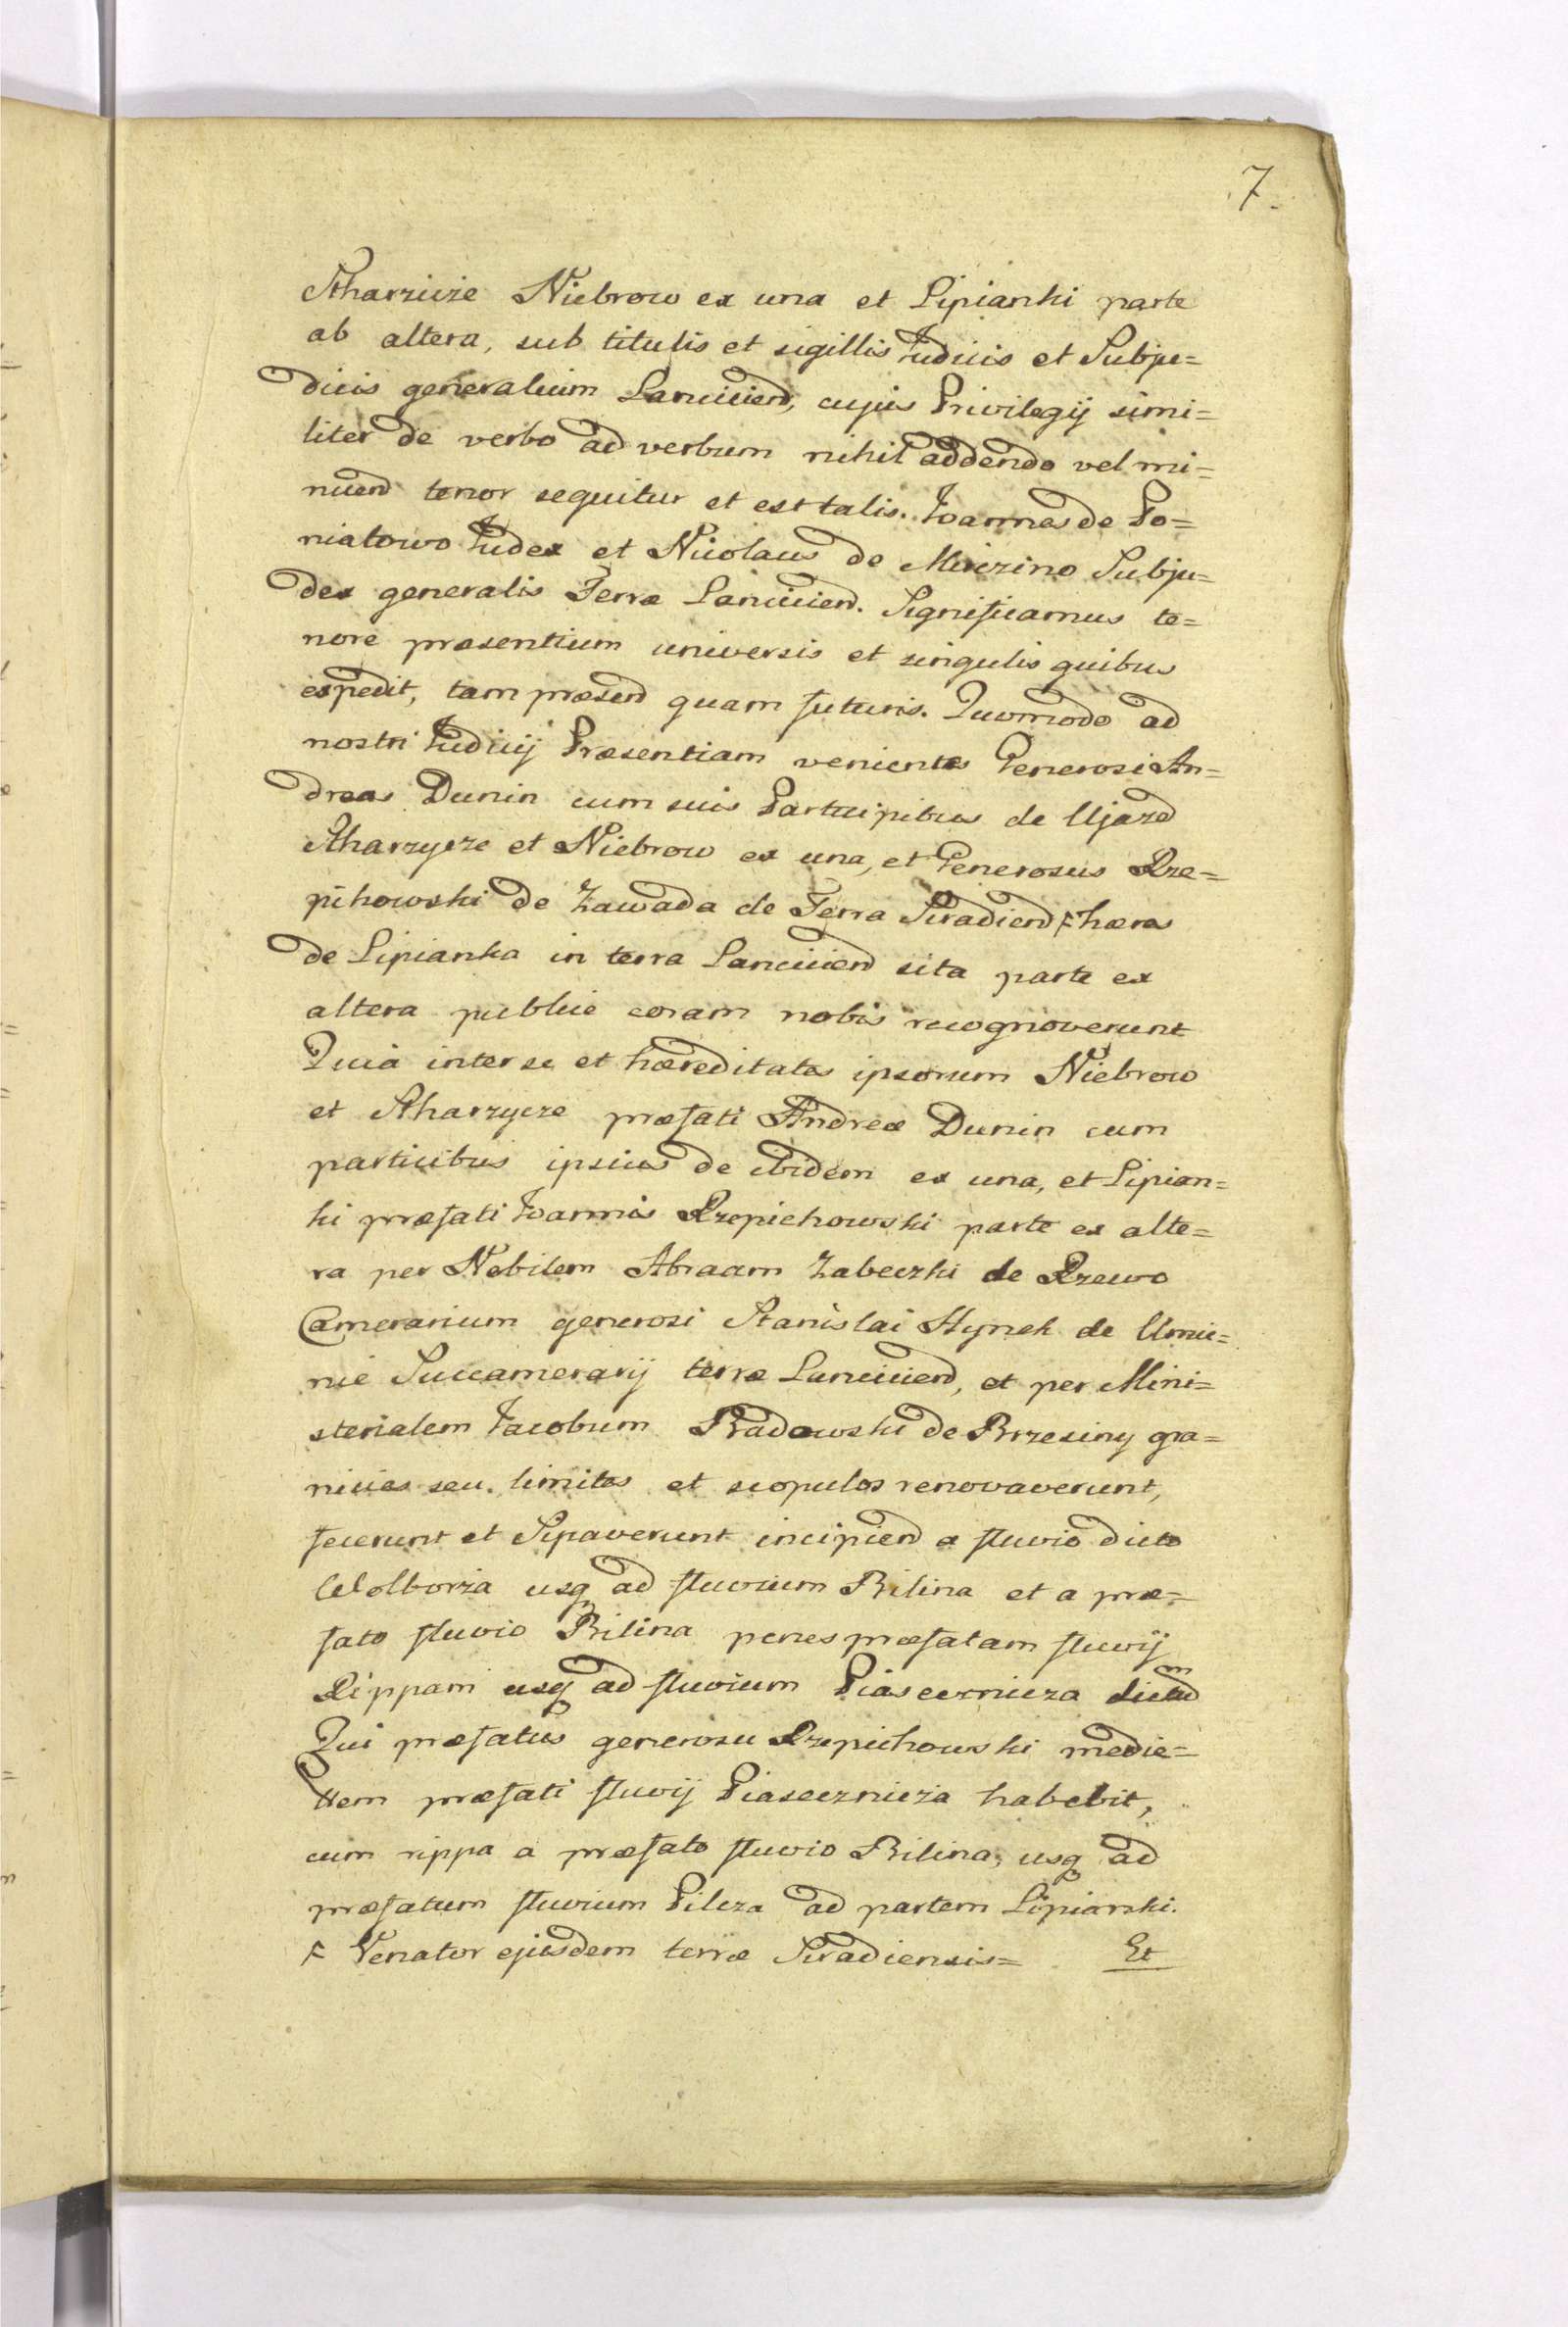 7.
Skarzicze Niebrow ex una et Lipianki parte
ab altera, sub titulis et sigillis Iudicis et Subju=
dicis generalium Lanciciend, cujus Privilegij simi=
liter de verbo ad verbum nihil addendo vel mi=
nuend tenor sequitur et est talis. Ioannes de Po=
niatowo Iudex et Nicolaus de Mirzino Subju=
dex generalis Terræ Lanciciend. Significamus te=
nore præsentium universis et singulis quibus
expedit, tam præsend quam futuris. Quomodo ad
nostri Iudicij Præsentiam venientes Generosi An=
dreas Dunin cum suis Participibus de Ujazd
Skarzycze et Niebrow ex una, et Generosus Rze=
pihowski de Zawada de Terra Siradiend F hæres
de Lipianka in terra Lanciciend sita parte ex
altera publice coram nobis recognoverunt
Quia inter se et hæreditates ipsorum Niebrow
et Skarzycze præfati Andreæ Dunin cum
particibus ipsius de ibidem ex una, et Lipian=
ki præfati Ioannis Rzepichowski parte ex alte=
ra per Nobilem Abraam Zabeczki de Rzewo
Camerarium generosi Stanislai Hynek de Umie=
nie Succamerarij terræ Lanciciend, et per Mini=
sterialem Iacobum Radowski de Brzesiny gra=
nicies seu limites et scopulos renovaverunt,
fecerunt et Sipaverunt incipiend a fluvio dicto
Wolborza usq ad fluvium Bilina et a præ=
fato fluvio Bilina penes præfatam fluvij
Rippam usq ad fluvium Piasecznicza dictum
Qui præfatus generosu Rzepichowski medie=
ttem præfati fluvij Piasecznicza habebit,
cum rippa a præfato fluvio Bilina, usq ad
præfatum fluvium Pilcza ad partem Lipianki.
F Venator ejusdem terræ Siradiensis= Et